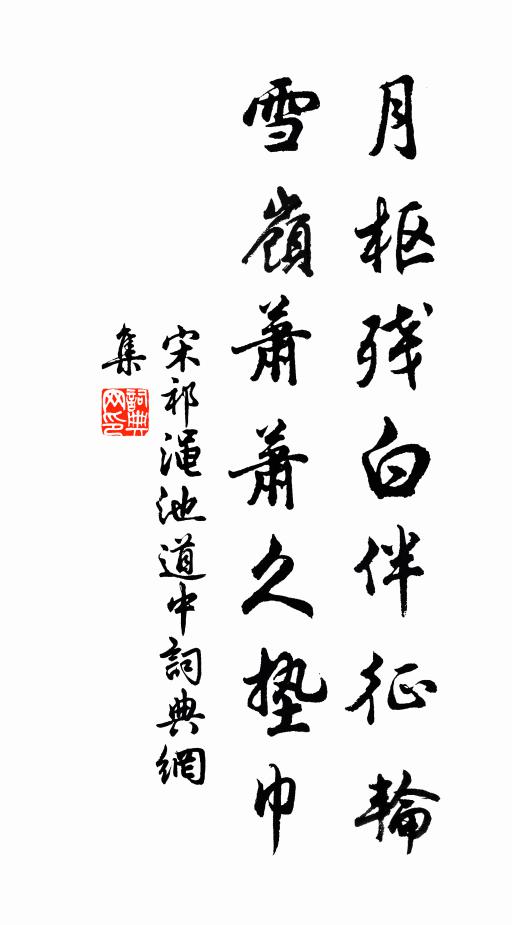 月枢残白伴征輪
雪嶺蕭蕭久墊巾
宋祁渑池道中詞典網
集
詞典网印